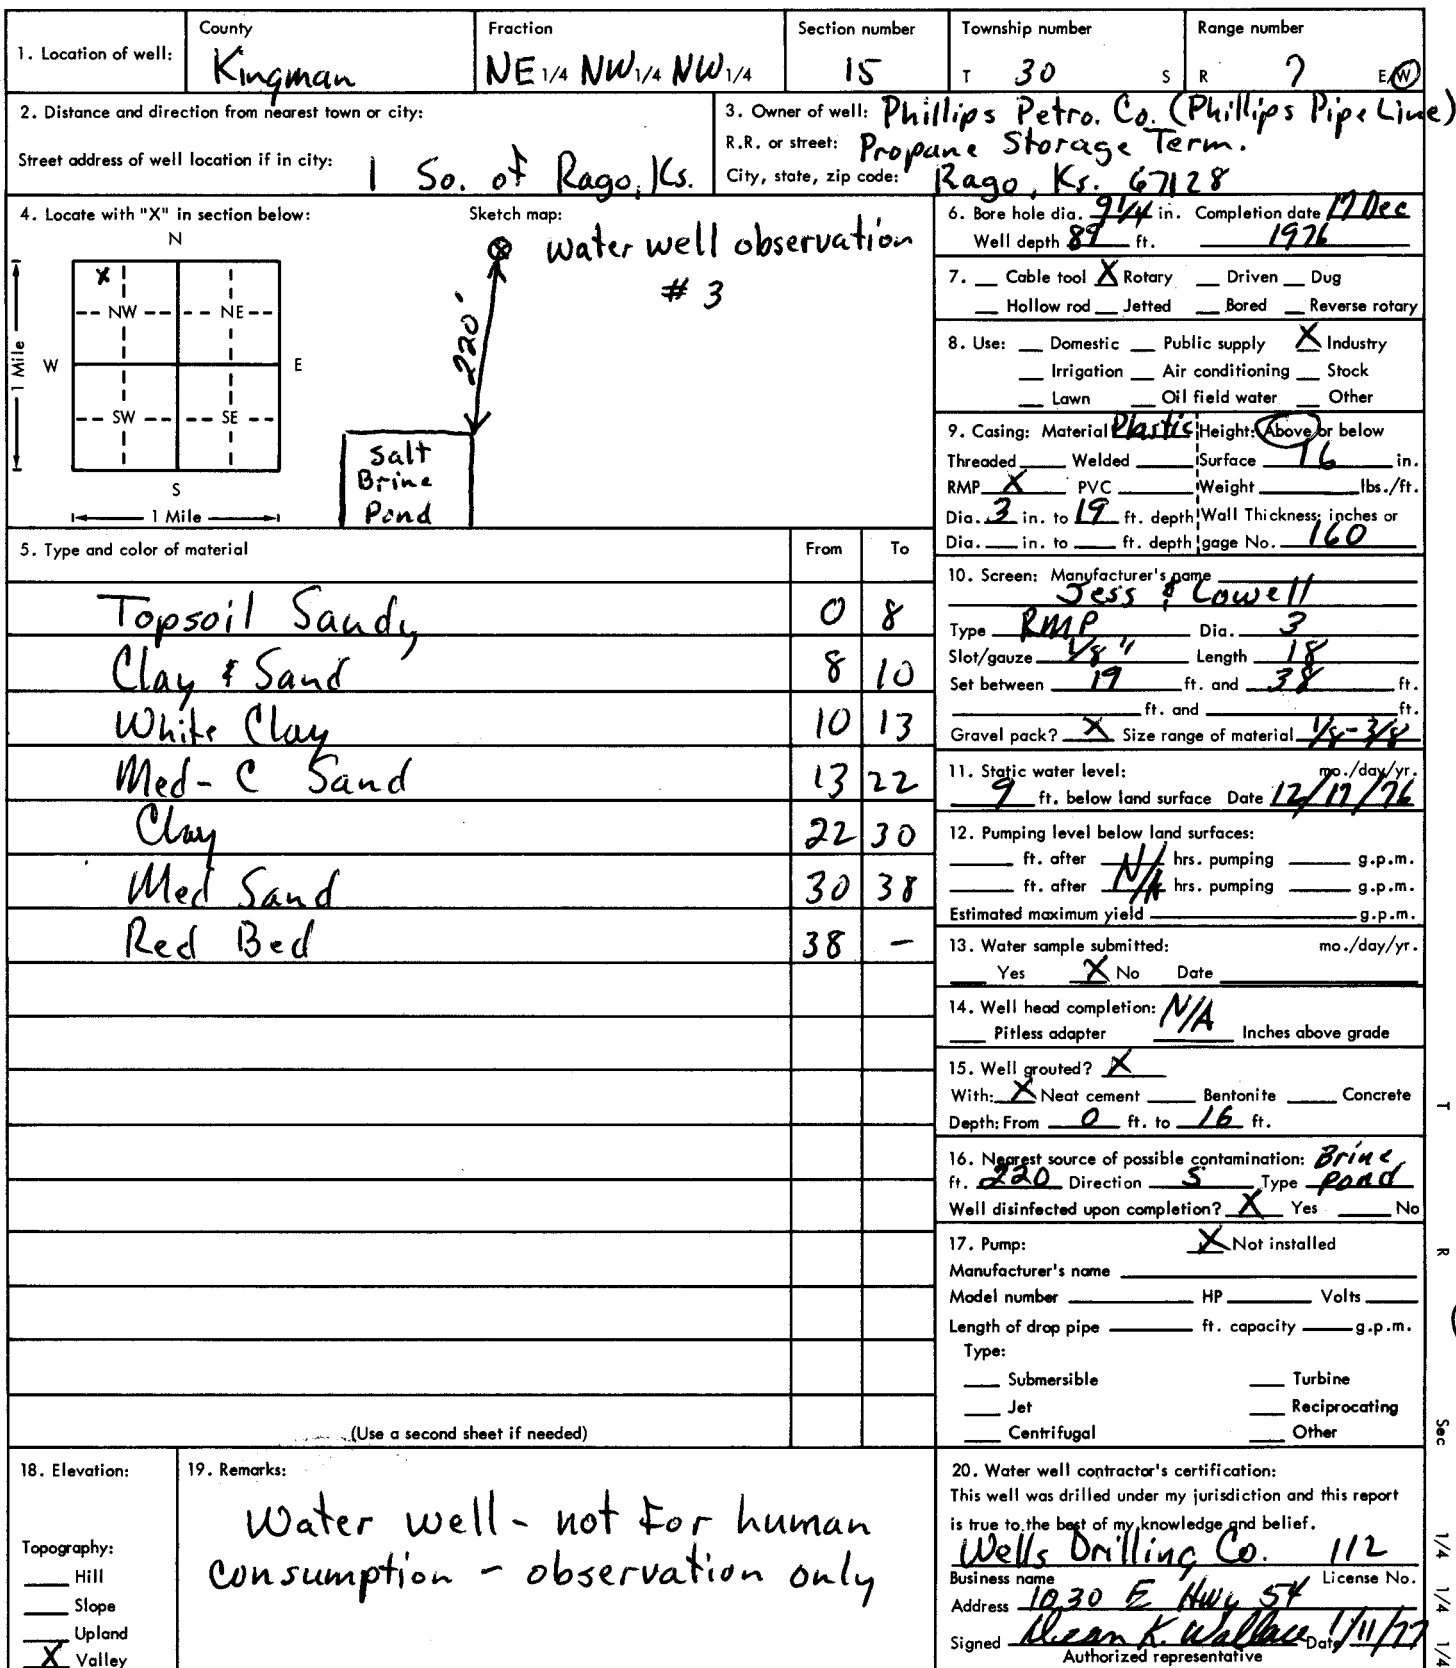 1. Location of well:
County
Kingman
Fraction
NE 1/4 NW 1/4 NW 1/4
Section number
15
Township number
T 30 S
Range number
R 7 E/W
2. Distance and direction from nearest town or city:
Street address of well location if in city: 1 So. of Rago, Ks.
3. Owner of well: Phillips Petro. Co. (Phillips Pipe Line)
R.R. or street: Propane Storage Term.
City, state, zip code: Rago, Ks. 67128
4. Locate with "X" in section below:
N
X
NW NE
W E
SW SE
S
1 Mile
1 Mile
Sketch map:
water well observation
# 3
220'
Salt
Brine
Pond
5. Type and color of material From To
Topsoil Sandy 0 8
Clay & Sand 8 10
White Clay 10 13
Med-C Sand 13 22
Clay 22 30
Med Sand 30 38
Red Bed 38 -
(Use a second sheet if needed)
6. Bore hole dia. 9 1/4 in. Completion date 17 Dec
Well depth ft. 1976
7. Cable tool X Rotary Driven Dug
Hollow rod Jetted Bored Reverse rotary
8. Use: Domestic Public supply X Industry
Irrigation Air conditioning Stock
Lawn Oil field water Other
9. Casing: Material Plastic Height: Above or below
Threaded Welded Surface 16 in.
RMP X PVC Weight lbs./ft.
Dia. 3 in. to 19 ft. depth Wall Thickness: inches or
Dia. in. to ft. depth gage No. 160
10. Screen: Manufacturer's name
Jess & Lowell
Type RMP Dia. 3
Slot/gauze 1/8" Length 18
Set between 19 ft. and 38 ft.
ft. and ft.
Gravel pack? X Size range of material 1/8-3/8
11. Static water level: mo./day/yr.
9 ft. below land surface Date 12/17/76
12. Pumping level below land surfaces:
ft. after N/A hrs. pumping g.p.m.
ft. after hrs. pumping g.p.m.
Estimated maximum yield g.p.m.
13. Water sample submitted: mo./day/yr.
Yes X No Date
14. Well head completion: N/A
Pitless adapter Inches above grade
15. Well grouted? X
With: X Neat cement Bentonite Concrete
Depth: From 0 ft. to 16 ft.
16. Nearest source of possible contamination: Brine
ft. 220 Direction S Type Pond
Well disinfected upon completion? X Yes No
17. Pump: X Not installed
Manufacturer's name
Model number HP Volts
Length of drop pipe ft. capacity g.p.m.
Type:
Submersible Turbine
Jet Reciprocating
Centrifugal Other
18. Elevation:
Topography:
Hill
Slope
Upland
X Valley
19. Remarks:
Water well - not for human
consumption - observation only
20. Water well contractor's certification:
This well was drilled under my jurisdiction and this report
is true to the best of my knowledge and belief.
Wells Drilling Co. 112
Business name License No.
Address 1030 E Hwy 54
Signed K. Wallace Date 1/11/77
Authorized representative
T
R
Sec
1/4 1/4 1/4